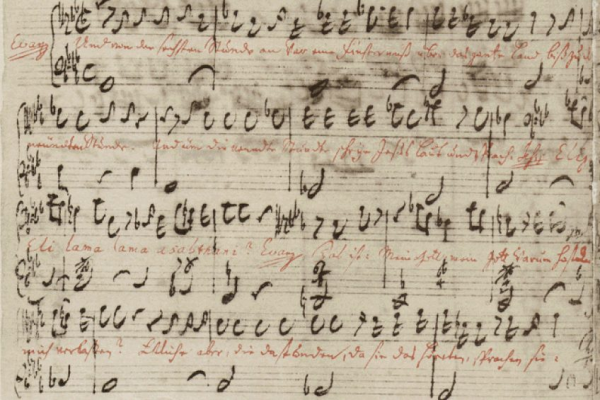 Evang Und von der sechsten Stunde an war eine Finsterniß über das gantze Land, biß zu d
neundten Stunde. Und um die neundte Stunde schrye Jesus laut und sprach: Eli,
Eli lama lama asabthani? Evang Das ist: Mein Gott, mein Gott warum hast du
mich verlassen? Etliche aber, die da stunden, da sie das höreten, sprachen sie: